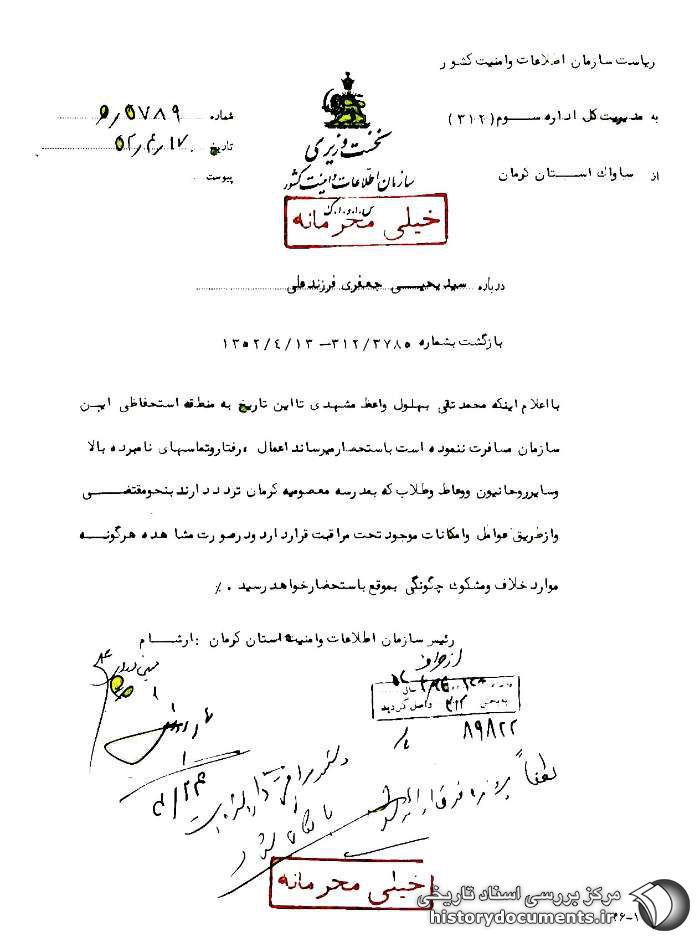 ریاست سازمان اطلاعات وامنیت کشور
به مدیریت کل اداره سوم (۳۱۲)
از ساواک استان کرمان
نخست وزیری
سازمان اطلاعات و امنیت کشور
س.ا.و.ا.ک
خیلی محرمانه
شماره ۵/۵۷۸۹
تاریخ ۵۲/۴/۱۷
پیوست
درباره سیدیحیی جعفری فرزندعلی
بازگشت بشماره ۳۱۲/۳۷۸۵-۱۳۵۲/۴/۱۳
بااعلام اینکه محمدتقی بهلول واعظ مشهدی تااین تاریخ به منطقه استحفاظی این
سازمان مسافرت ننموده است باستحضارمیرساند اعمال ،رفتاروتماسهای نامبرده بالا
وسایرروحانیون ووعاظ وطلاب که بمدرسه معصومیه کرمان تردد دارند بنحومقتضی
وازطریق عوامل وامکانات موجود تحت مراقبت قرارداردودرصورت مشاهده هرگونه
موارد خلاف ومشکوک چگونگی بموقع باستحضارخواهد رسید ٠٪
رئیس سازمان اطلاعات وامنیت استان کرمان :ارشام
از طرف
به بخش ۳۱۲ واصل گردید
۸۹۸۲۲
لطفاً پرونده
خیلی محرمانه
مرکز بررسی اسناد تاریخی
historydocuments.ir